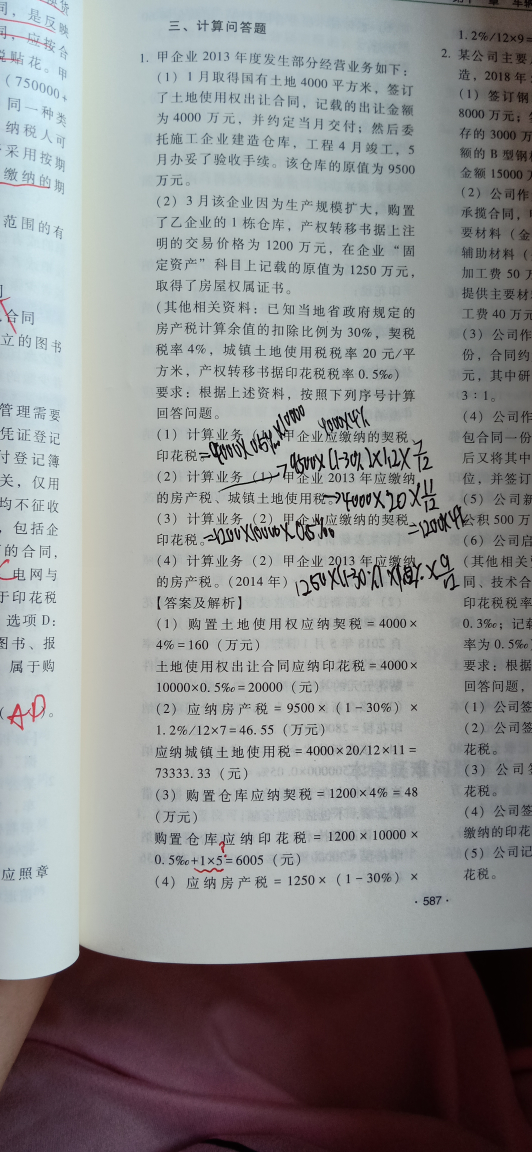 三、计算问答题
1. 甲企业 2013 年度发生部分经营业务如下：
（1）1 月取得国有土地 4000 平方米，签订
了土地使用权出让合同，记载的出让金额
为 4000 万元，并约定当月交付；然后委
托施工企业建造仓库，工程 4 月竣工，5
月办妥了验收手续。该仓库的原值为 9500
万元。
（2）3 月该企业因为生产规模扩大，购置
了乙企业的 1 栋仓库，产权转移书据上注
明的交易价格为 1200 万元，在企业“固
定资产”科目上记载的原值为 1250 万元，
取得了房屋权属证书。
（其他相关资料：已知当地省政府规定的
房产税计算余值的扣除比例为 30%，契税
税率 4%，城镇土地使用税税率 20 元/平
方米，产权转移书据印花税税率 0.5‰）
要求：根据上述资料，按照下列序号计算
回答问题。
4000×4%
（1）计算业务（1）甲企业应缴纳的契税、
印花税。
（2）计算业务（1）甲企业 2013 年应缴纳
9500×(1-30%)×1.2×7/12
的房产税、城镇土地使用税。
→4000×20×11/12
（3）计算业务（2）甲企业应缴纳的契税、
印花税。
=1200×10000×0.5‰
=1200×4%
（4）计算业务（2）甲企业 2013 年应缴纳
的房产税。（2014 年）
【答案及解析】
（1）购置土地使用权应纳契税 = 4000×
4%=160（万元）
土地使用权出让合同应纳印花税 = 4000×
10000×0.5‰=20000（元）
（2）应纳房产税 = 9500×（1-30%）×
1.2%/12×7=46.55（万元）
应纳城镇土地使用税 = 4000×20/12×11=
73333.33（元）
（3）购置仓库应纳契税 = 1200×4% = 48
（万元）
购置仓库应纳印花税 = 1200×10000×
?
0.5‰+1×5=6005（元）
（4）应纳房产税 = 1250×（1-30%）×
· 587 ·
同，是反映
同，应按合
税贴花。甲
（750000+
同一种类
纳税人可
采用按期
缴纳的期
范围的有
合同
立的图书
管理需要
凭证登记
付登记簿
关，仅用
均不征收
，包括企
的合同，
C 电网与
于印花税
选项 D：
图书、报
属于购
AD。
应照章
1.2%/12×9=
2. 某公司主要
造，2018 年
（1）签订钢
8000 万元；
存的 3000 万
额的 B 型钢
金额 15000 万
（2）公司作
承揽合同，
要材料（金
辅助材料（
加工费 50 万
提供主要材
工费 40 万元
（3）公司作
份，合同约
元，其中研
3∶1。
（4）公司作
包合同一份
后又将其中
位，并签订
（5）公司新
公积 500 万
（6）公司启
（其他相关
同、技术合
印花税税率
0.3‰；记载
率为 0.5‰
要求：根据
回答问题，
（1）公司签
（2）公司签
花税。
（3）公司签
花税。
（4）公司签
缴纳的印花
（5）公司记
花税。